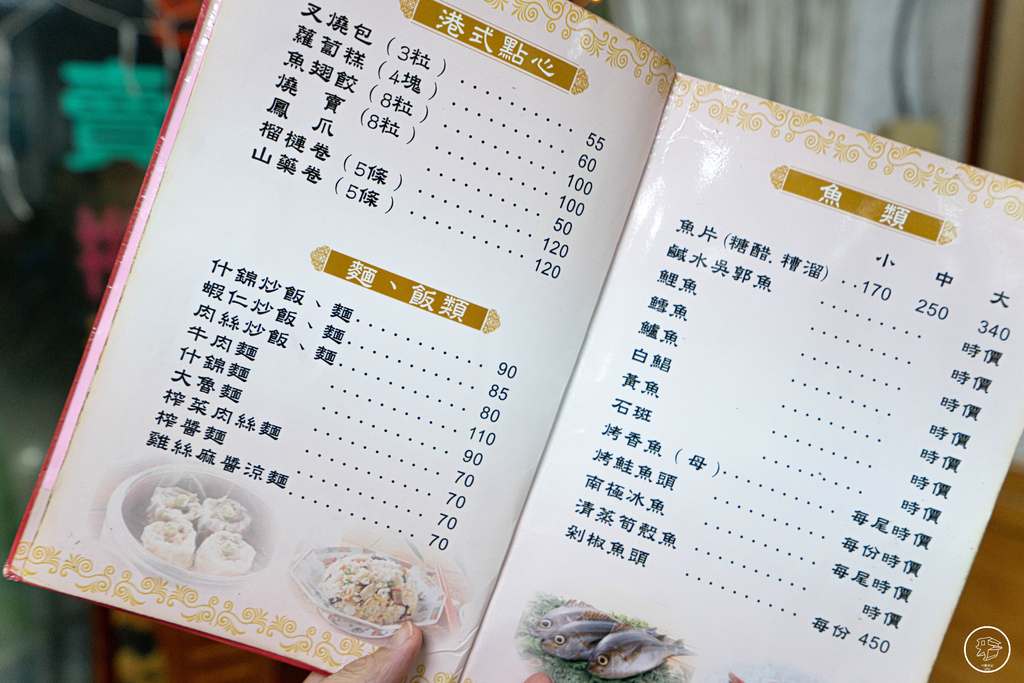 港式點心
叉燒包 (3粒) .......... 55
蘿蔔糕 (4塊) .......... 60
魚翅餃 (8粒) .......... 100
燒賣 (8粒) .......... 100
鳳爪 .......... 50
榴槤卷 (5條) .......... 120
山藥卷 (5條) .......... 120
麵、飯類
什錦炒飯、麵 .......... 90
蝦仁炒飯、麵 .......... 85
肉絲炒飯、麵 .......... 80
牛肉麵 .......... 110
什錦麵 .......... 90
大魯麵 .......... 70
榨菜肉絲麵 .......... 70
榨醬麵 .......... 70
雞絲麻醬涼麵 .......... 70
魚類
小 中 大
魚片(糖醋.糟溜) ..170 250 340
鹹水吳郭魚 .......... 時價
鯉魚 .......... 時價
鱈魚 .......... 時價
鱸魚 .......... 時價
白鯧 .......... 時價
黃魚 .......... 時價
石斑 .......... 時價
烤香魚(母) .......... 每尾時價
烤鮭魚頭 .......... 每份時價
南極冰魚 .......... 每尾時價
清蒸筍殼魚 .......... 時價
剁椒魚頭 .......... 每份 450